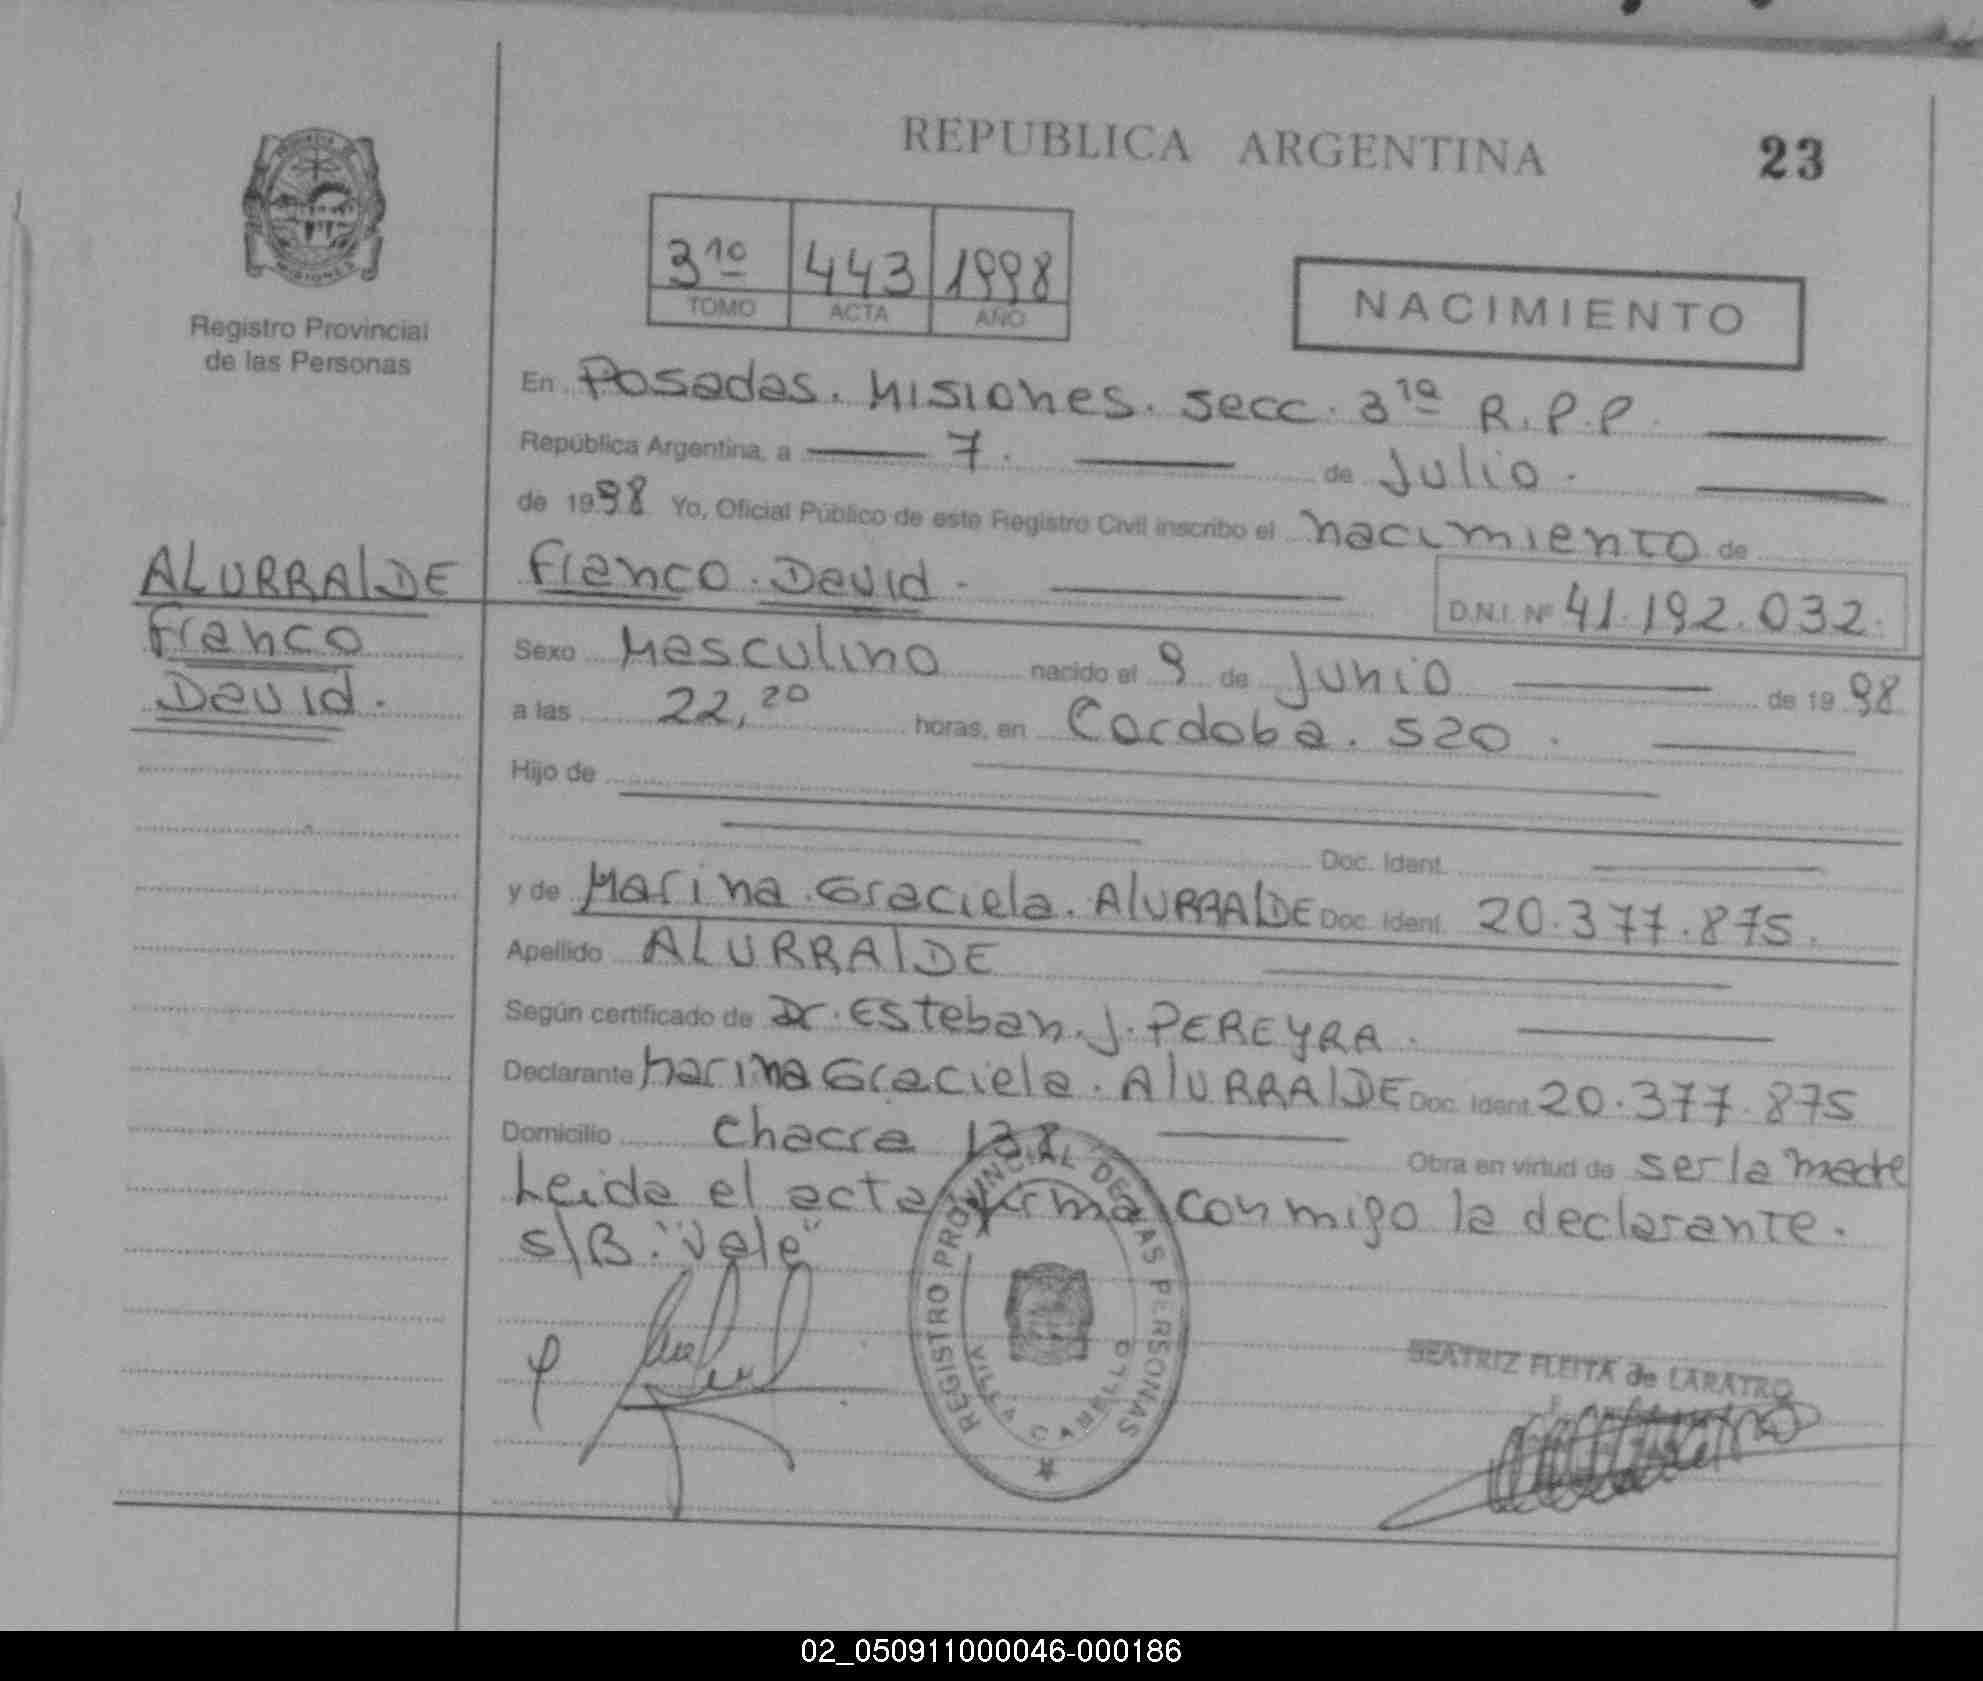 REPUBLICA ARGENTINA
23
MISIONES
Registro Provincial
de las Personas
3¹º 443 1998
TOMO ACTA AÑO
NACIMIENTO
En Posadas. Misiones. Secc. 3¹ª R.P.P.
República Argentina, a 7. de Julio.
de 1998 Yo, Oficial Público de este Registro Civil inscribo el nacimiento de
ALURRALDE
Franco
David.
Franco. David.
D.N.I. Nº 41.192.032.
Sexo Masculino nacido el 9 de Junio de 1998
a las 22,²⁰ horas, en Cordoba. 520.
Hijo de
Doc. Ident.
y de Marina. Graciela. AlURRAlDE Doc. Ident. 20.377.875.
Apellido ALURRAlDE
Según certificado de Dr. Esteban. J. PEREYRA.
Declarante Marina Graciela. AlURRAlDE Doc. Ident. 20.377.875
Domicilio Chacra 138 Obra en virtud de ser la madre
Leida el acta firma conmigo la declarante.
S/B. "Vale"
REGISTRO PROVINCIAL DE LAS PERSONAS
VILLA CABELLO
BEATRIZ FLEITA de LARATRO
02_050911000046-000186